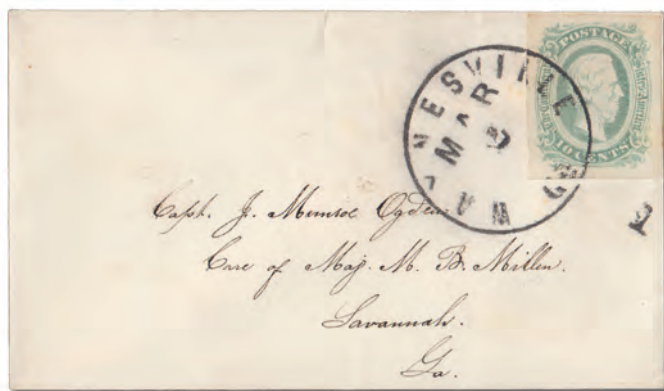 POSTAGE
10 CENTS
WAYNESVILLE
MAR
Capt. J. Munroe Ogden
Care of Maj. M. B. Millen.
Savannah.
Ga.